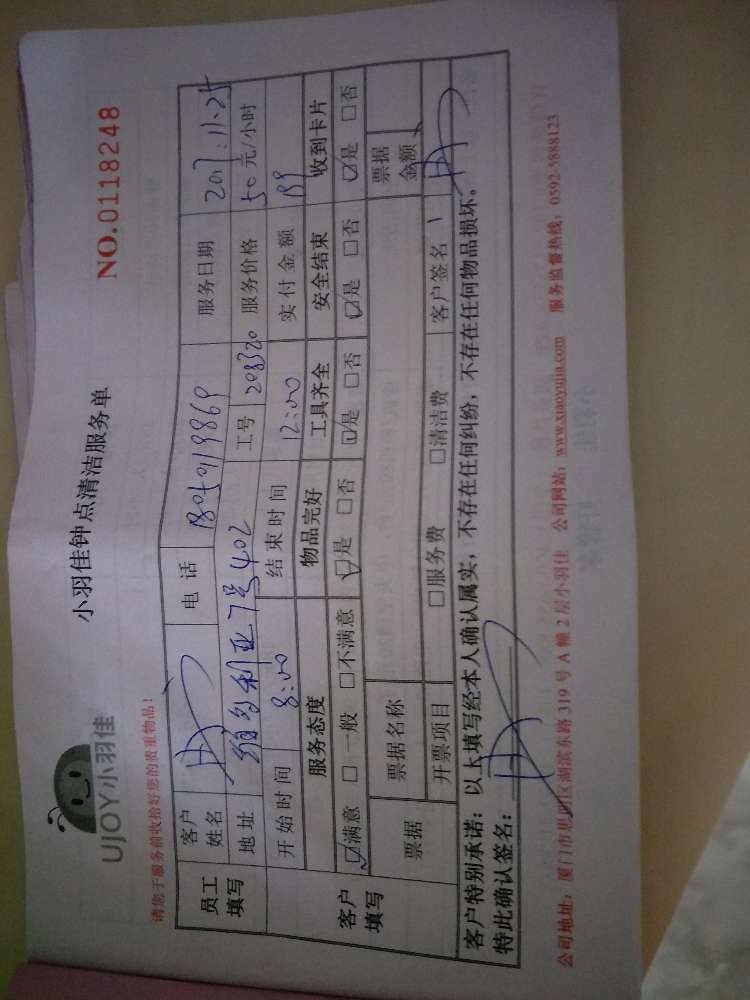 UJOY小羽佳
小羽佳钟点清洁服务单
NO.0118248
请您于服务前收拾好您的贵重物品!
员工填写 客户姓名 电话 服务日期 2017.11.25
地址 维多利亚7号402 工号 208320 服务价格 50元/小时
开始时间 8:00 结束时间 12:00 实付金额 199
客户填写 服务态度 物品完好 工具齐全 安全结束 收到卡片
☑满意 □一般 □不满意 ☑是 □否 ☑是 □否 ☑是 □否 ☑是 □否
票据 票据名称 票据金额
开票项目 □服务费 □清洁费 客户签名
客户特别承诺:以上填写经本人确认属实,不存在任何纠纷,不存在任何物品损坏。
特此确认签名:
公司地址:厦门市思明区湖滨东路319号A幢2层小羽佳 公司网站:www.xiaoyujia.com 服务监督热线:0592-5888123